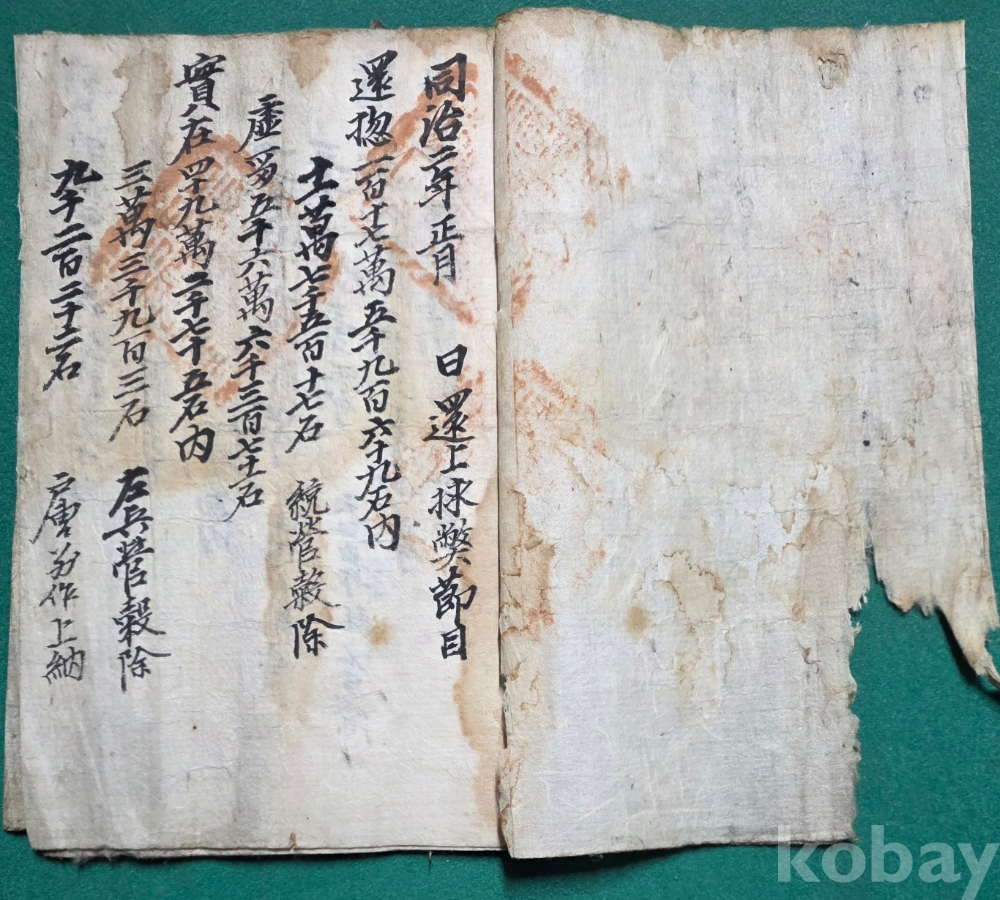 同治二年 正月 日 還上捄弊節目
還揔一百十七萬五千九百六十九石內
十一萬七千五百十七石 統營穀除
虛留五十六萬六千三百七十一石
實在四十九萬二千七十五石內
三萬三千九百三石 左兵營穀除
九千二百二十二石 作上納
kobay